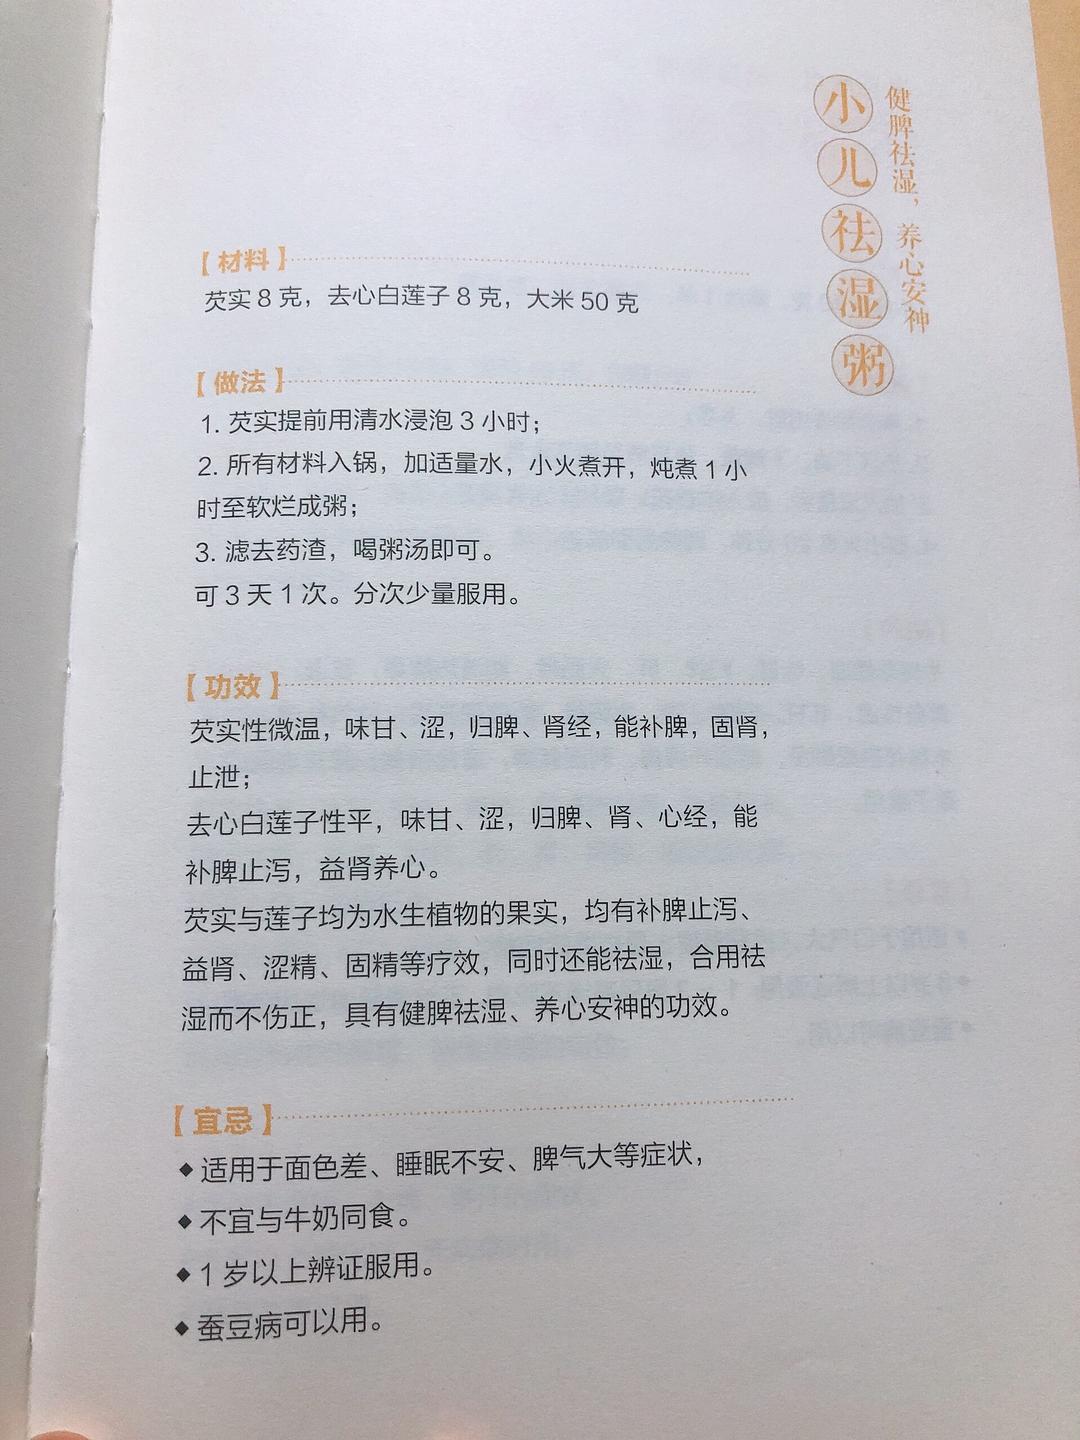 健脾祛湿，养心安神
小儿祛湿粥
【材料】
芡实 8 克，去心白莲子 8 克，大米 50 克
【做法】
1. 芡实提前用清水浸泡 3 小时；
2. 所有材料入锅，加适量水，小火煮开，炖煮 1 小
时至软烂成粥；
3. 滤去药渣，喝粥汤即可。
可 3 天 1 次。分次少量服用。
【功效】
芡实性微温，味甘、涩，归脾、肾经，能补脾，固肾，
止泄；
去心白莲子性平，味甘、涩，归脾、肾、心经，能
补脾止泻，益肾养心。
芡实与莲子均为水生植物的果实，均有补脾止泻、
益肾、涩精、固精等疗效，同时还能祛湿，合用祛
湿而不伤正，具有健脾祛湿、养心安神的功效。
【宜忌】
◆ 适用于面色差、睡眠不安、脾气大等症状，
◆ 不宜与牛奶同食。
◆ 1 岁以上辨证服用。
◆ 蚕豆病可以用。